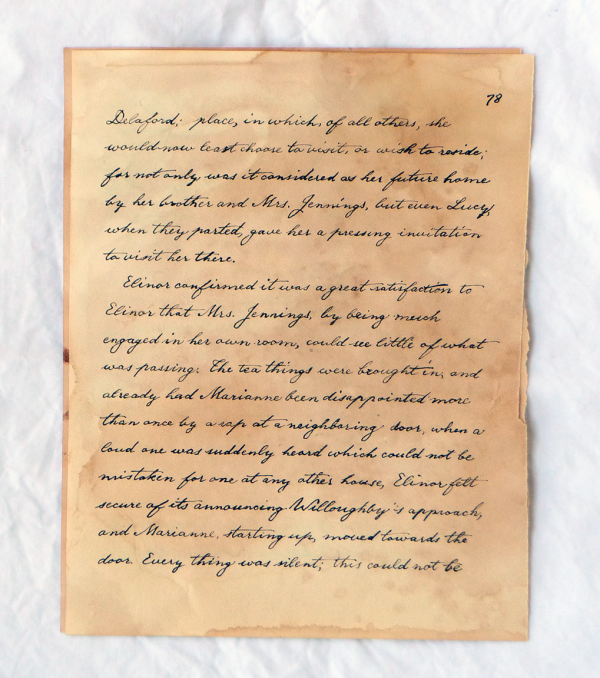 78
Delaford; place, in which, of all others, she
would now least choose to visit, or wish to reside;
for not only was it considered as her future home
by her brother and Mrs. Jennings, but even Lucy,
when they parted, gave her a pressing invitation
to visit her there.
Elinor confirmed it was a great satisfaction to
Elinor that Mrs. Jennings, by being much
engaged in her own room, could see little of what
was passing. The tea things were brought in, and
already had Marianne been disappointed more
than once by a rap at a neighboring door, when a
loud one was suddenly heard which could not be
mistaken for one at any other house, Elinor felt
secure of its announcing Willoughby's approach,
and Marianne, starting up, moved towards the
door. Every thing was silent; this could not be